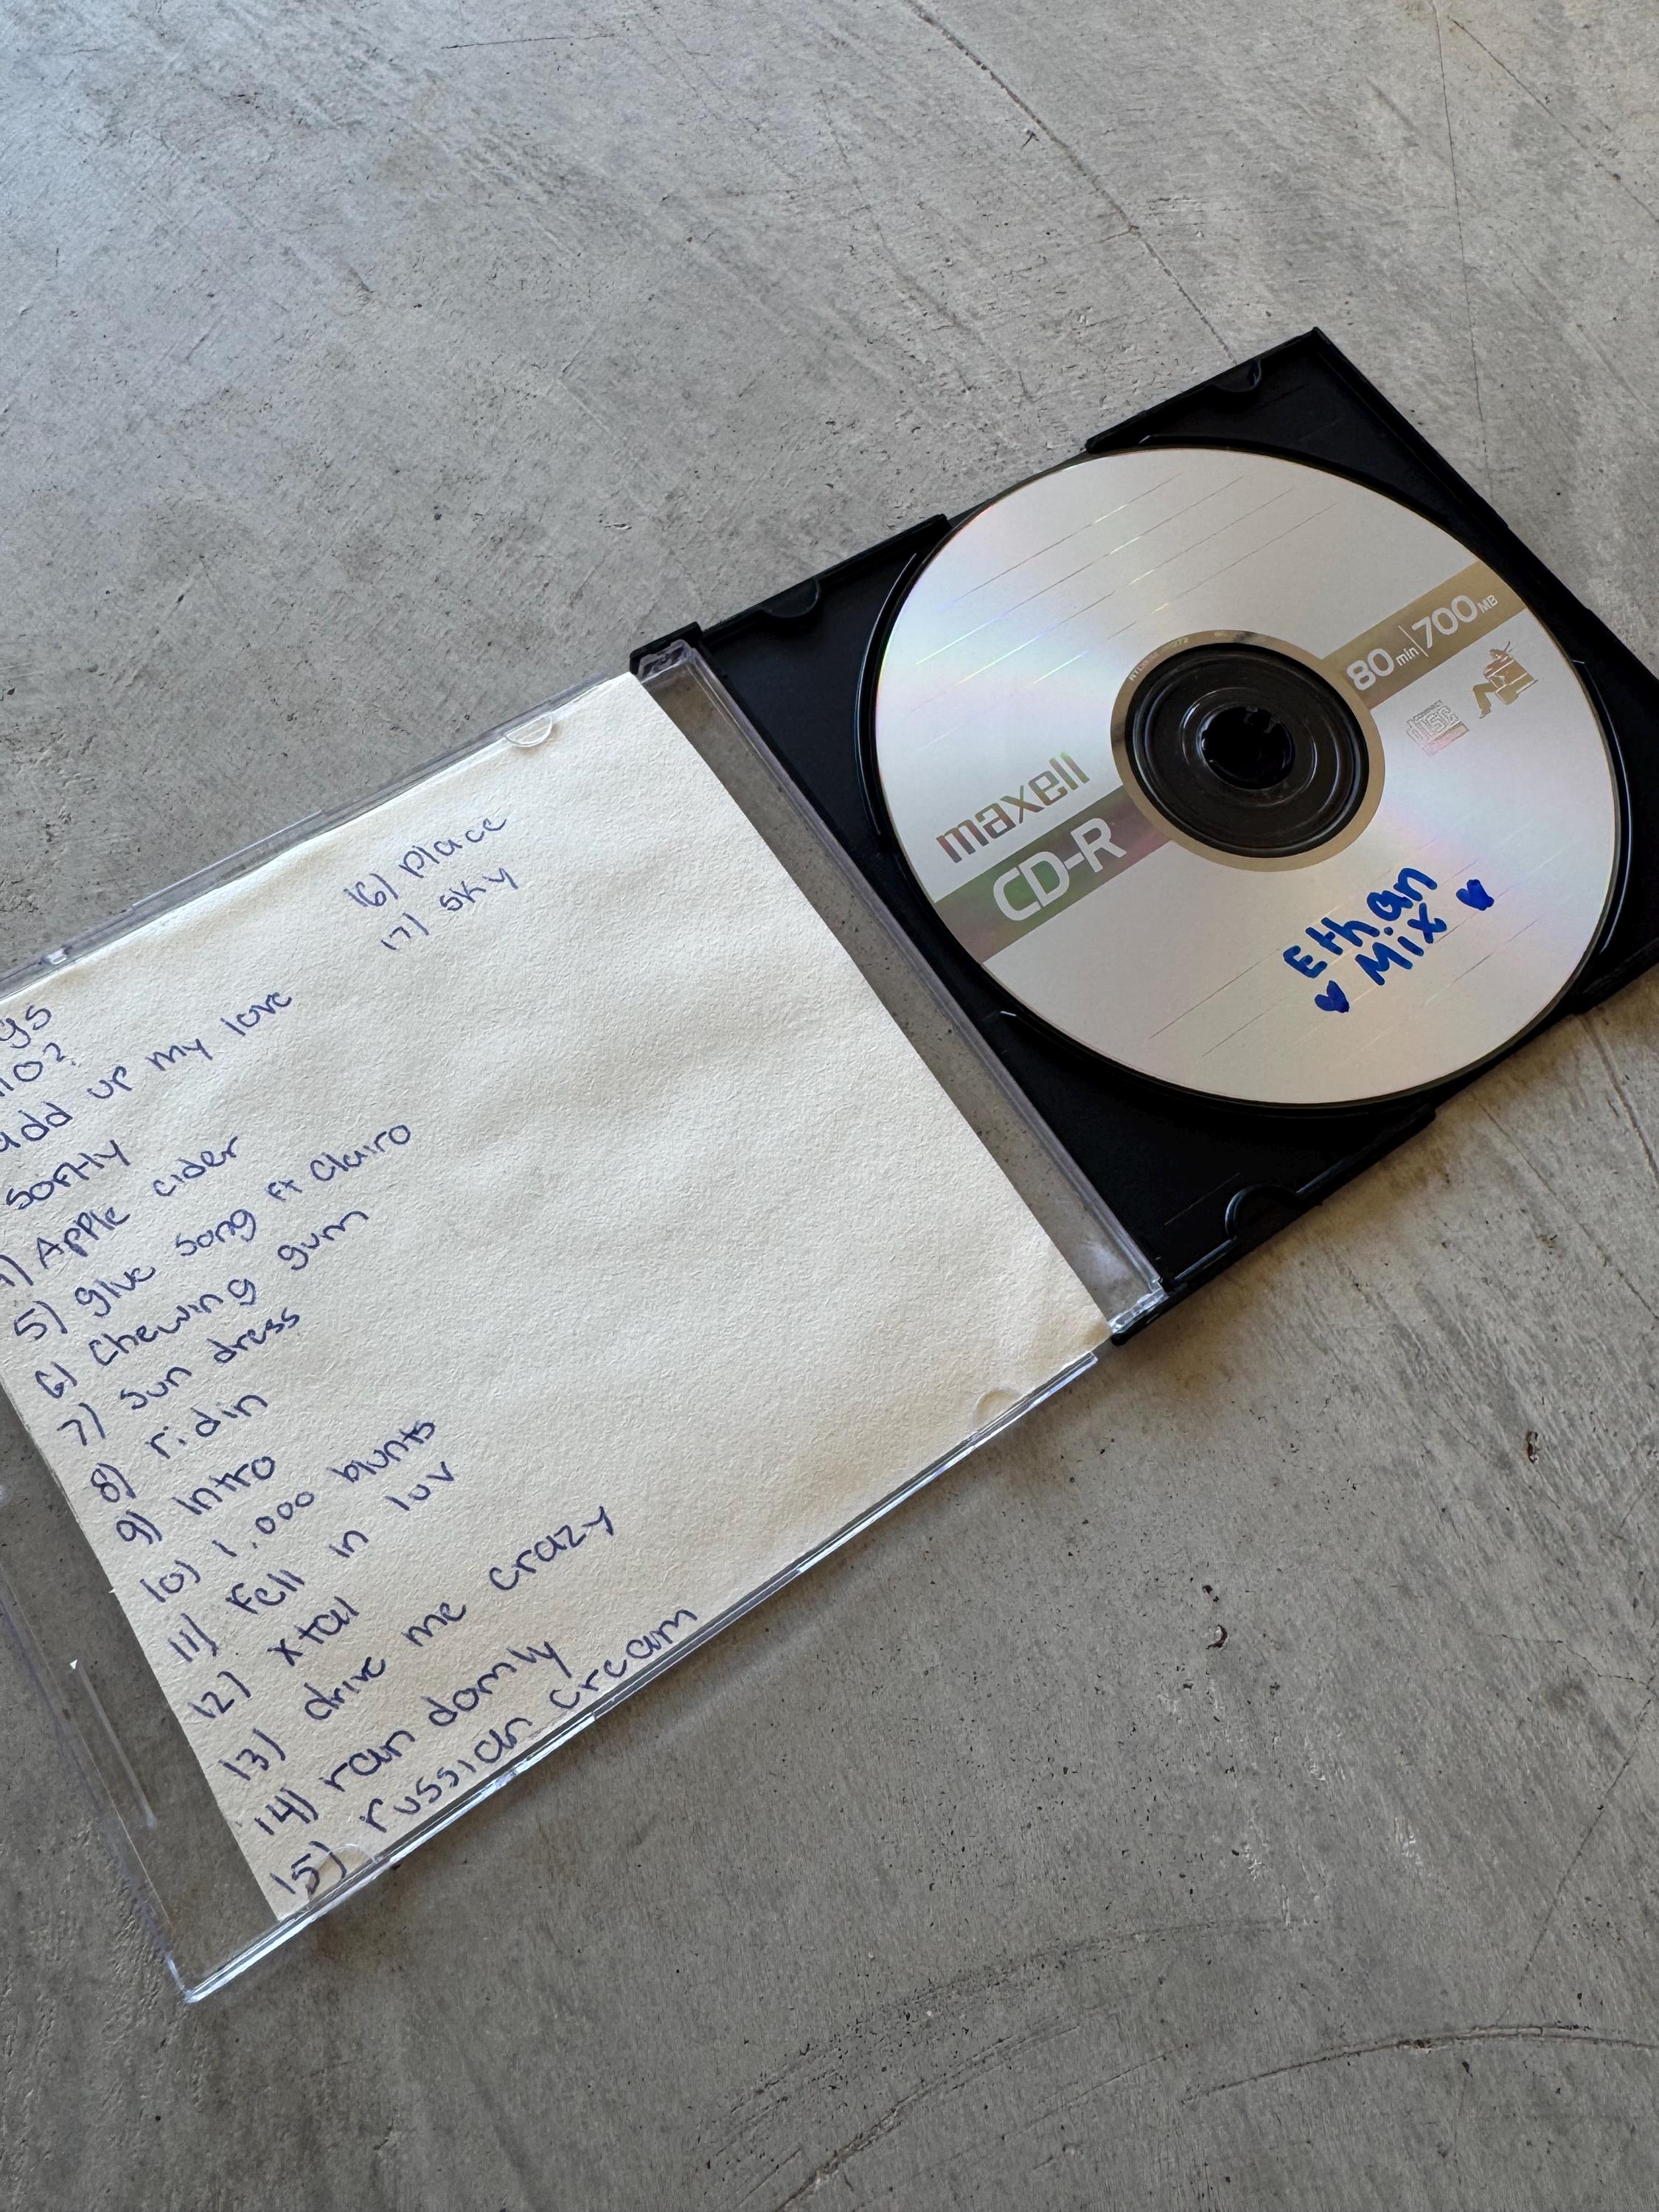 gs
add up my love
softly
4) Apple cider
5) glue song ft Clairo
6) Chewing gum
7) sun dress
8) ridin
9) intro
10) 1,000 blunts
11) Fell in luv
12) xtal
13) drive me crazy
14) randomly
15) russian cream
16) place
17) sky
maxell
CD-R
80min|700MB
Ethan
Mix